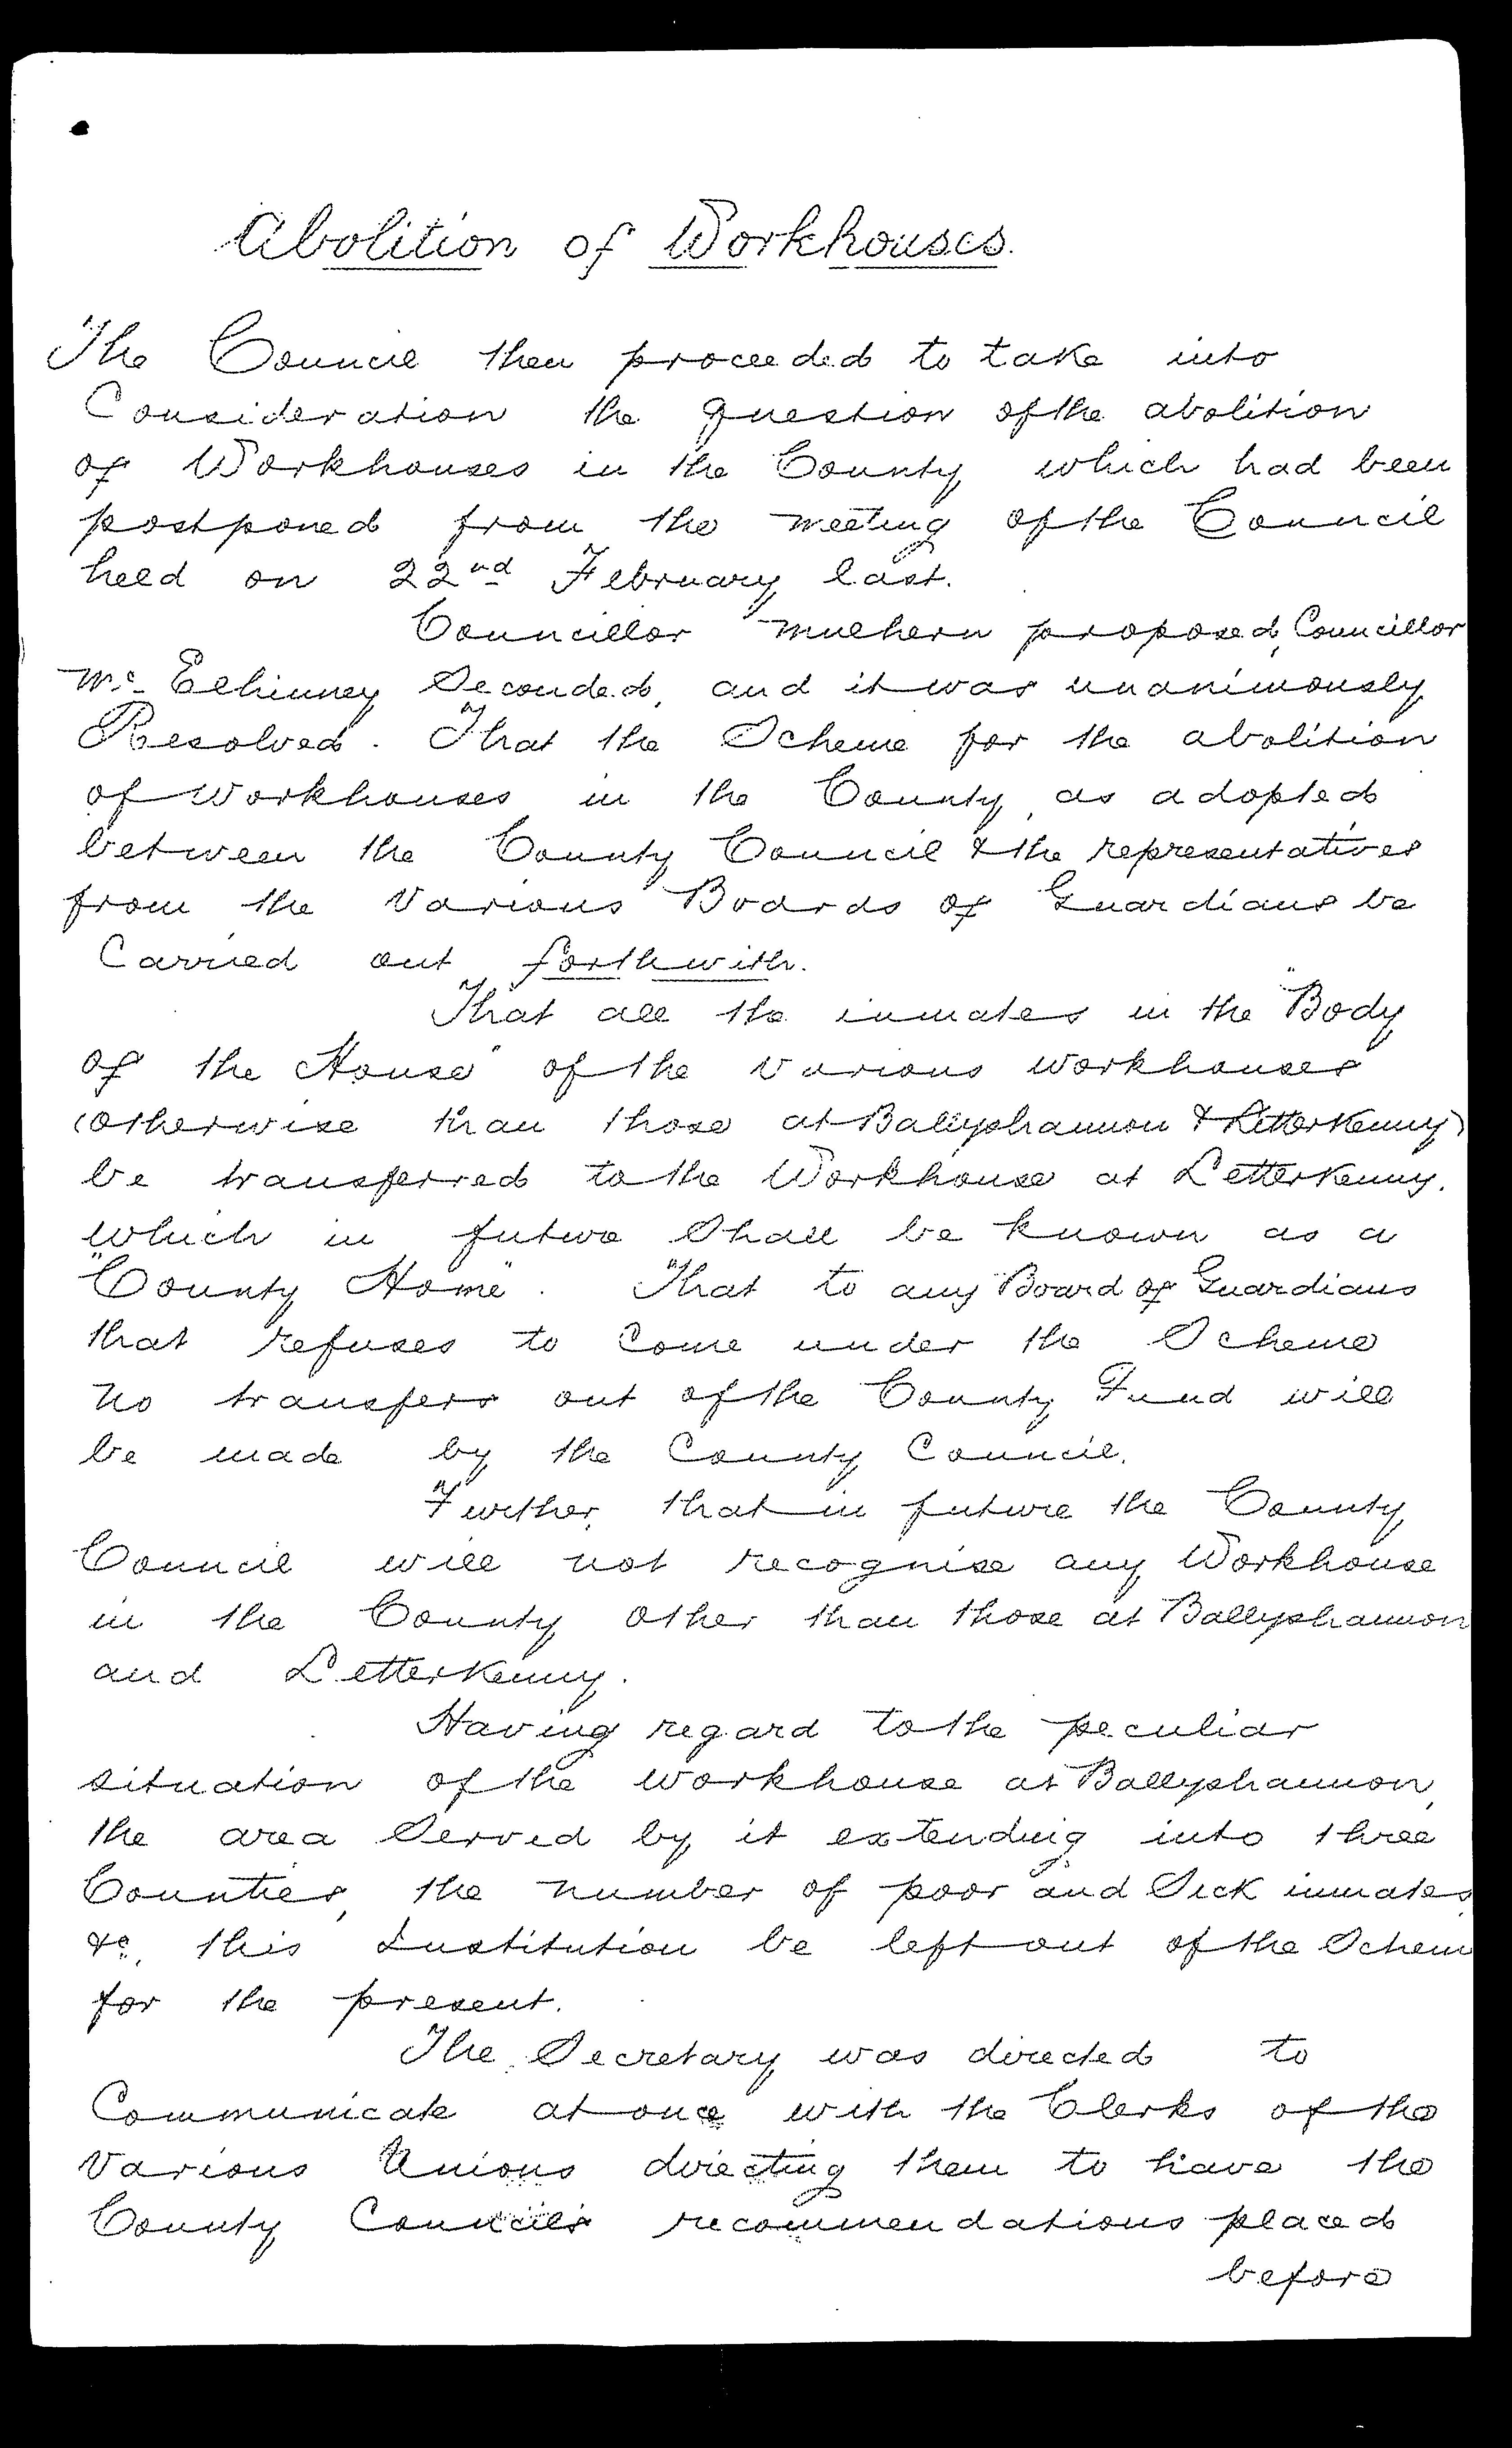 Abolition of Workhouses.
The Council then proceeded to take into
Consideration the question of the abolition
of Workhouses in the County which had been
postponed from the meeting of the Council
held on 22nd February last.
Councillor Mulhern proposed, Councillor
McElhinney Seconded, and it was unanimously
Resolved. That the Scheme for the abolition
of Workhouses in the County, as adopted
between the County Council & the representatives
from the Various Boards of Guardians be
Carried out forthwith.
That all the inmates in the "Body
of the House" of the various workhouses
(otherwise than those at Ballyshannon & Letterkenny)
be transferred to the Workhouse at Letterkenny.
which in future Shall be known as a
"County Home". That to any Board of Guardians
that refuses to Come under the Scheme
no transfers out of the County Fund will
be made by the County Council.
Further, that in future the County
Council will not recognise any Workhouse
in the County other than those at Ballyshannon
and Letterkenny.
Having regard to the peculiar
situation of the workhouse at Ballyshannon,
the area Served by it extending into three
Counties, the number of poor and Sick inmates,
&c, this Institution be left out of the Schem
for the present.
The Secretary was directed to
Communicate at once with the Clerks of the
Various Unions directing them to have the
County Council's recommendations placed
before